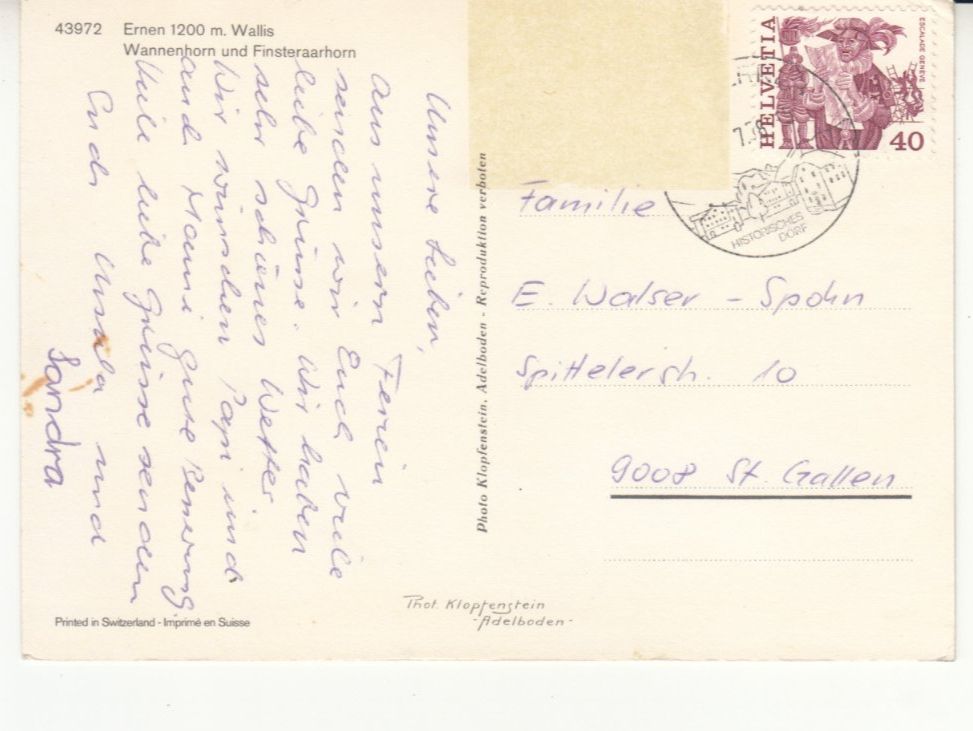 43972 Ernen 1200 m. Wallis
Wannenhorn und Finsteraarhorn
Unsere Lieben,
Aus unsern Ferien
senden wir Euch viele
liebe Grüsse. Wir haben
sehr schönes Wetter
Wir wünschen Papi und
und Mami gute Besserung
Viele liebe Grüsse senden
Ursula und
Sandra
Printed in Switzerland - Imprimé en Suisse
Photo Klopfenstein, Adelboden - Reproduktion verboten
Phot. Klopfenstein
- Adelboden -
HELVETIA
ESCALADE GENÈVE
40
HISTORISCHES
DORF
Familie
E. Walser - Spohn
Spittelerstr. 10
9008 St. Gallen